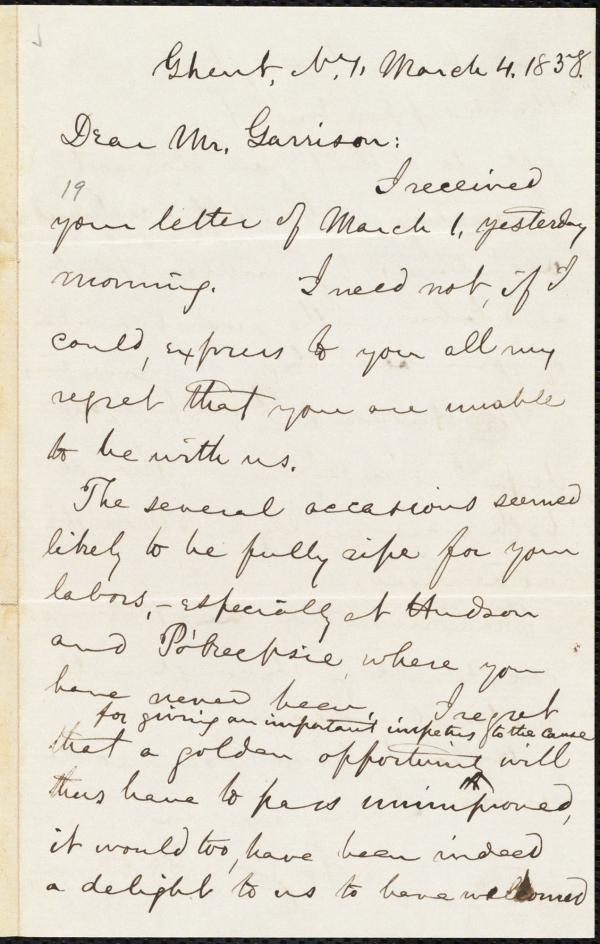 Ghent, N.Y. March 4. 1858.
Dear Mr. Garrison:
19
I received
your letter of March 1, yesterday
morning. I need not, if I
could, express to you all my
regret that you are unable
to be with us.
The several occasions seemed
likely to be fully ripe for your
labors, – especially at Hudson
and Po'keepsie, where you
have never been. I regret
for giving an important impetus to the cause
that a golden opportunity will
thus have to pass unimproved,
it would too, have been indeed
a delight to us to have welcomed